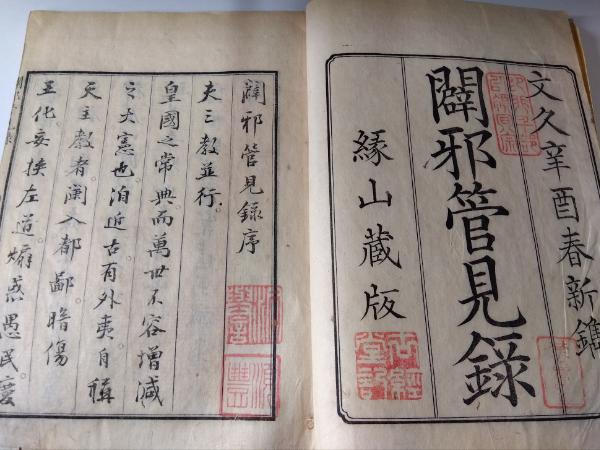 文久辛酉春新鐫
闢邪管見録
緣山藏版
闢邪管見録序
夫三教並行
皇國之常典而萬世不容増減
之大憲也洎近古有外夷自稱
天主教者闌入都鄙暗傷
王化妄挾左道煽惑愚民